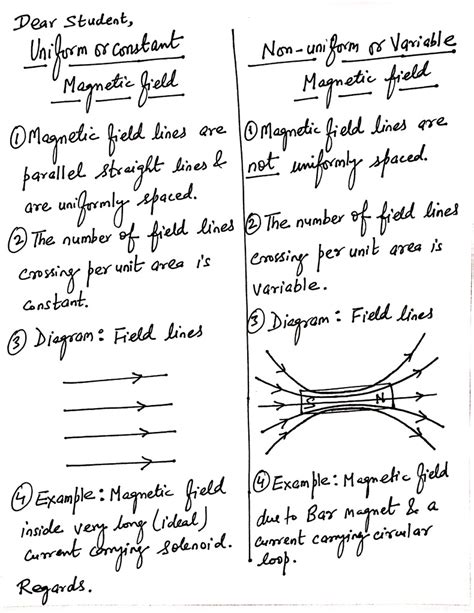 Dear Student,
Uniform or Constant
Magnetic field
① Magnetic field lines are
parallel straight lines &
are uniformly spaced.
② The number of field lines
crossing per unit area is
constant.
③ Diagram: Field lines
④ Example: Magnetic field
inside very long (ideal)
current carrying solenoid.
Regards.
Non-uniform or Variable
Magnetic field
① Magnetic field lines are
not uniformly spaced.
② The number of field lines
crossing per unit area is
variable.
③ Diagram: Field lines
S N
④ Example: Magnetic field
due to Bar magnet & a
current carrying circular
loop.